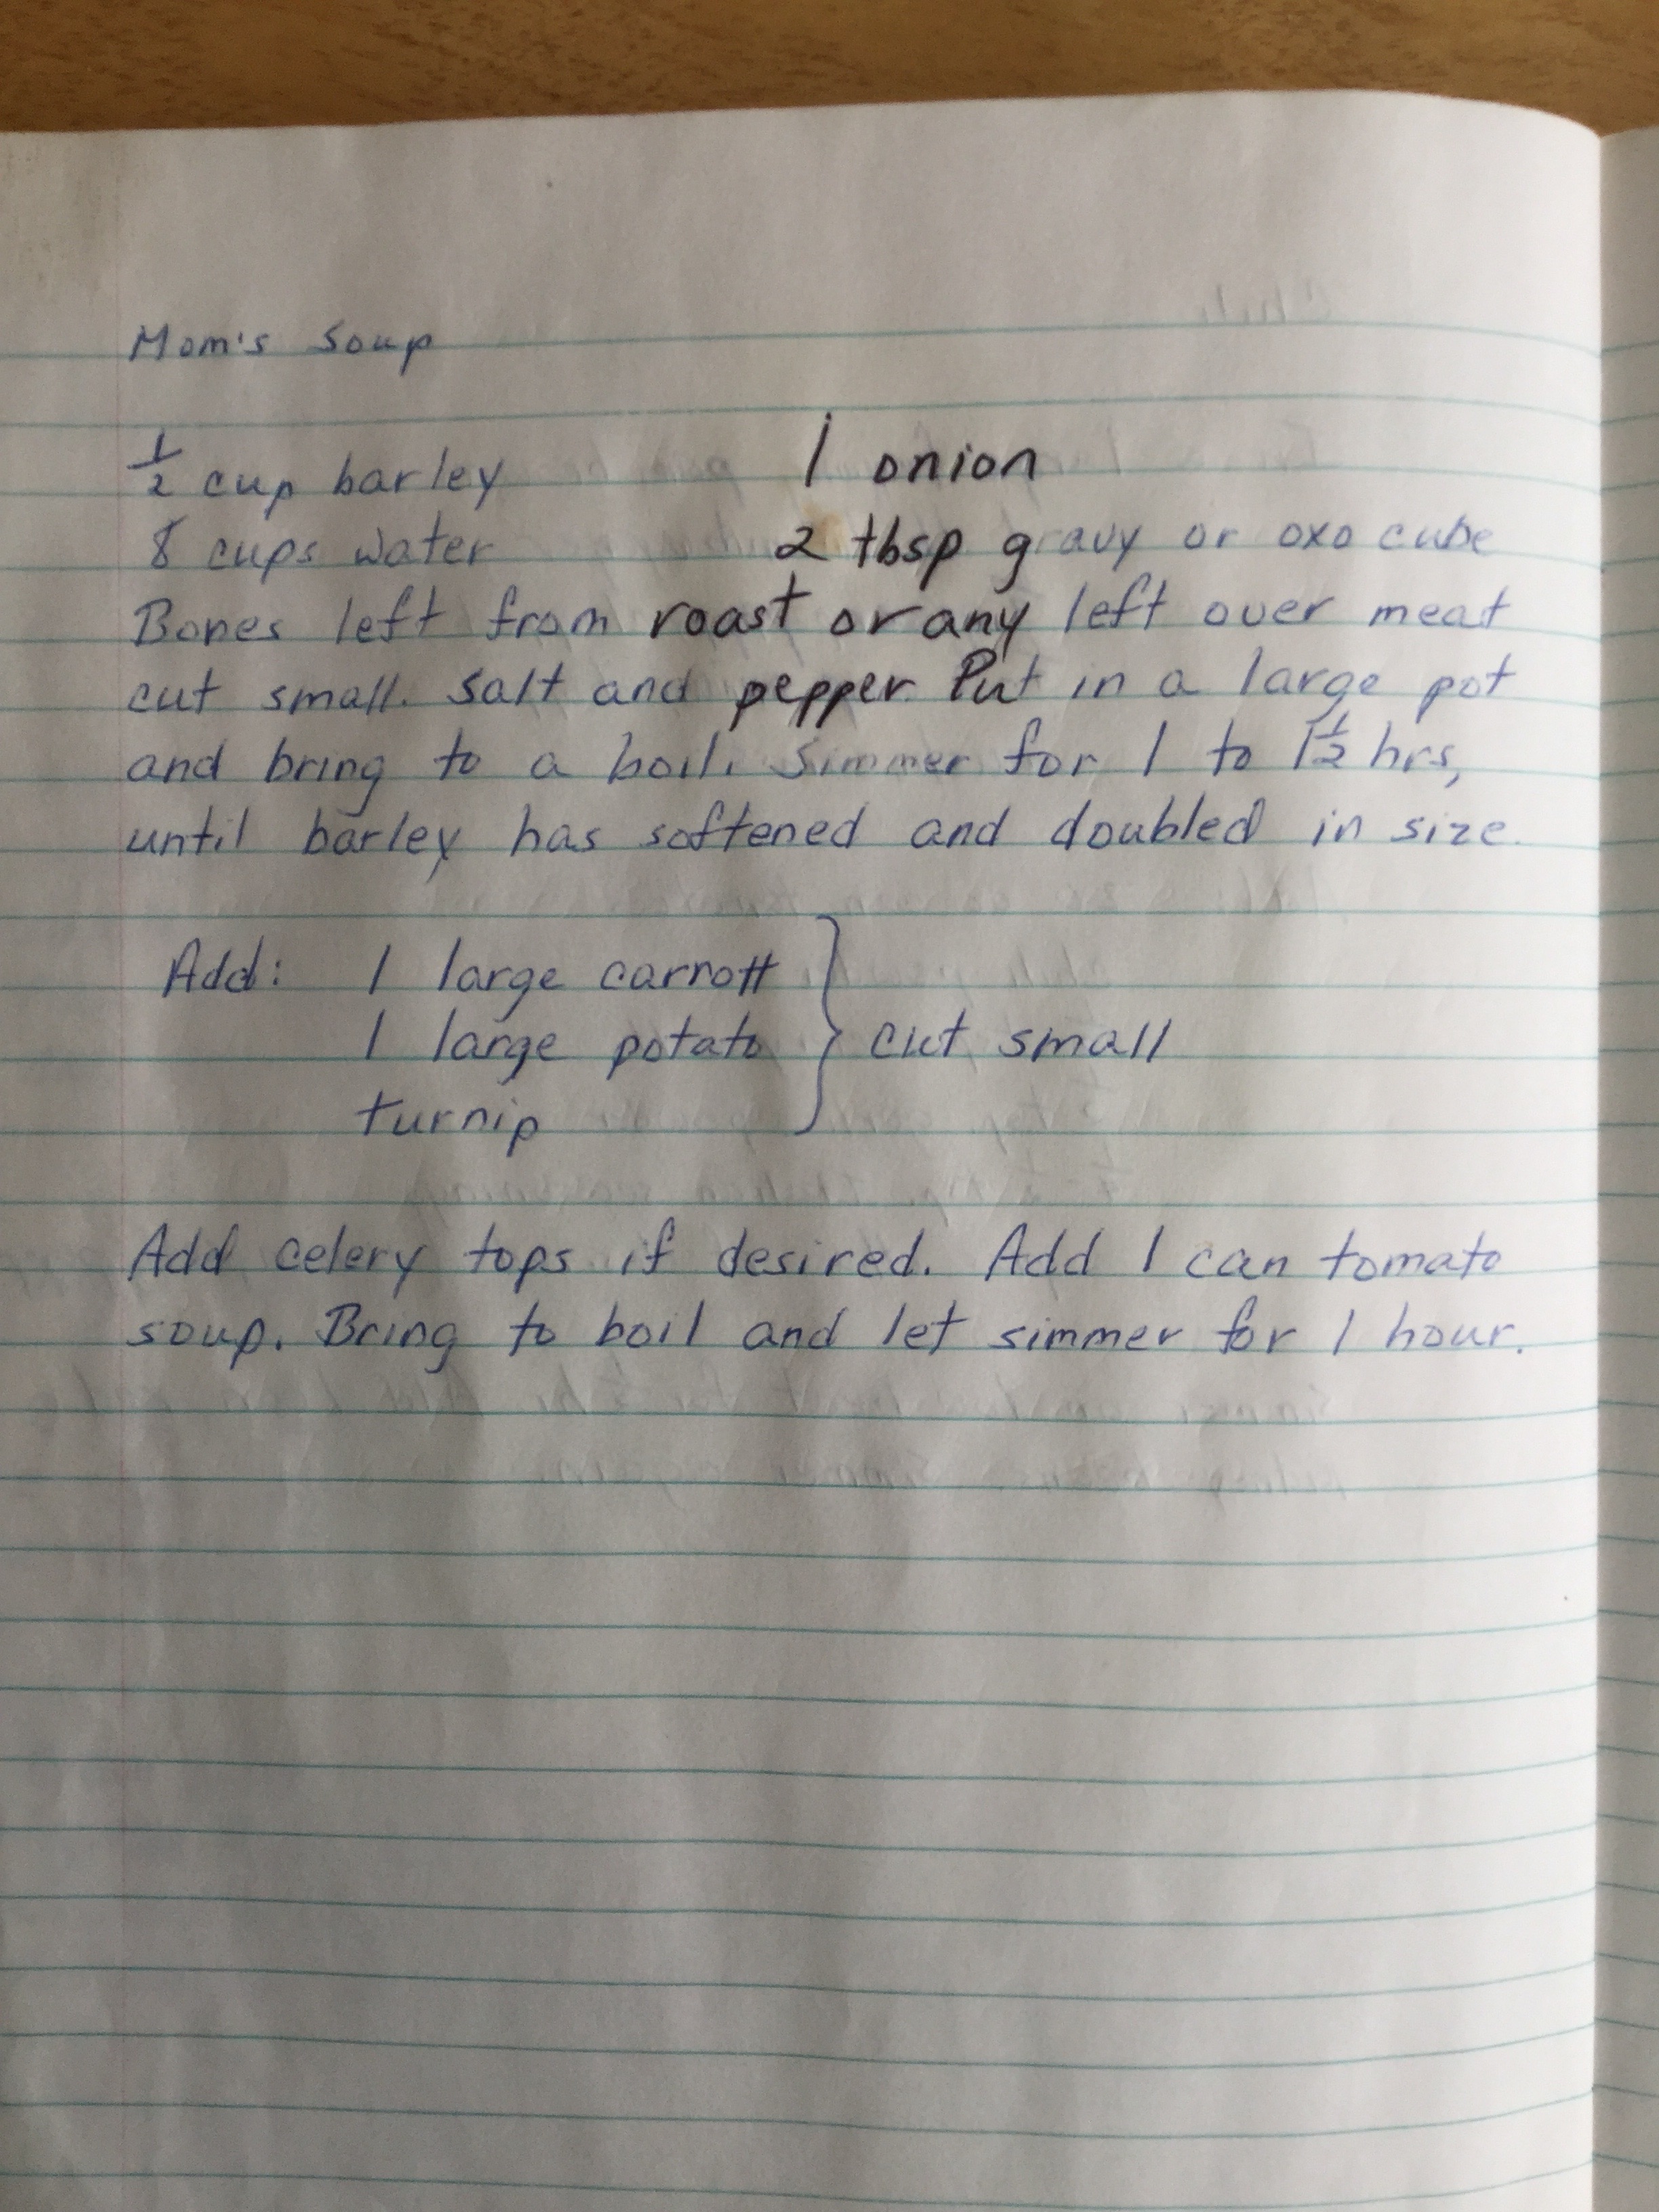 Mom's Soup
½ cup barley 1 onion
8 cups water 2 tbsp gravy or oxo cube
Bones left from roast or any left over meat
cut small. Salt and pepper. Put in a large pot
and bring to a boil. Simmer for 1 to 1½ hrs,
until barley has softened and doubled in size.
Add: 1 large carrott
1 large potato } cut small
turnip
Add celery tops if desired. Add 1 can tomato
soup. Bring to boil and let simmer for 1 hour.